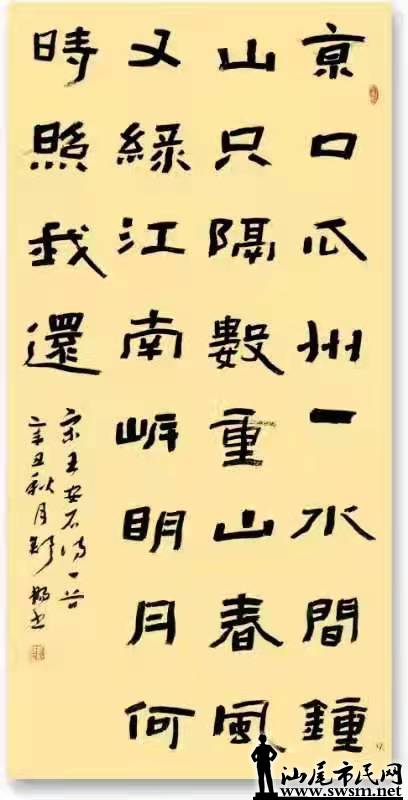 京口瓜州一水間鍾
山只隔數重山春風
又綠江南岸明月何
時照我還
宋王安石詩一首
辛丑秋月鄭書
汕尾市民网
www.swsm.net